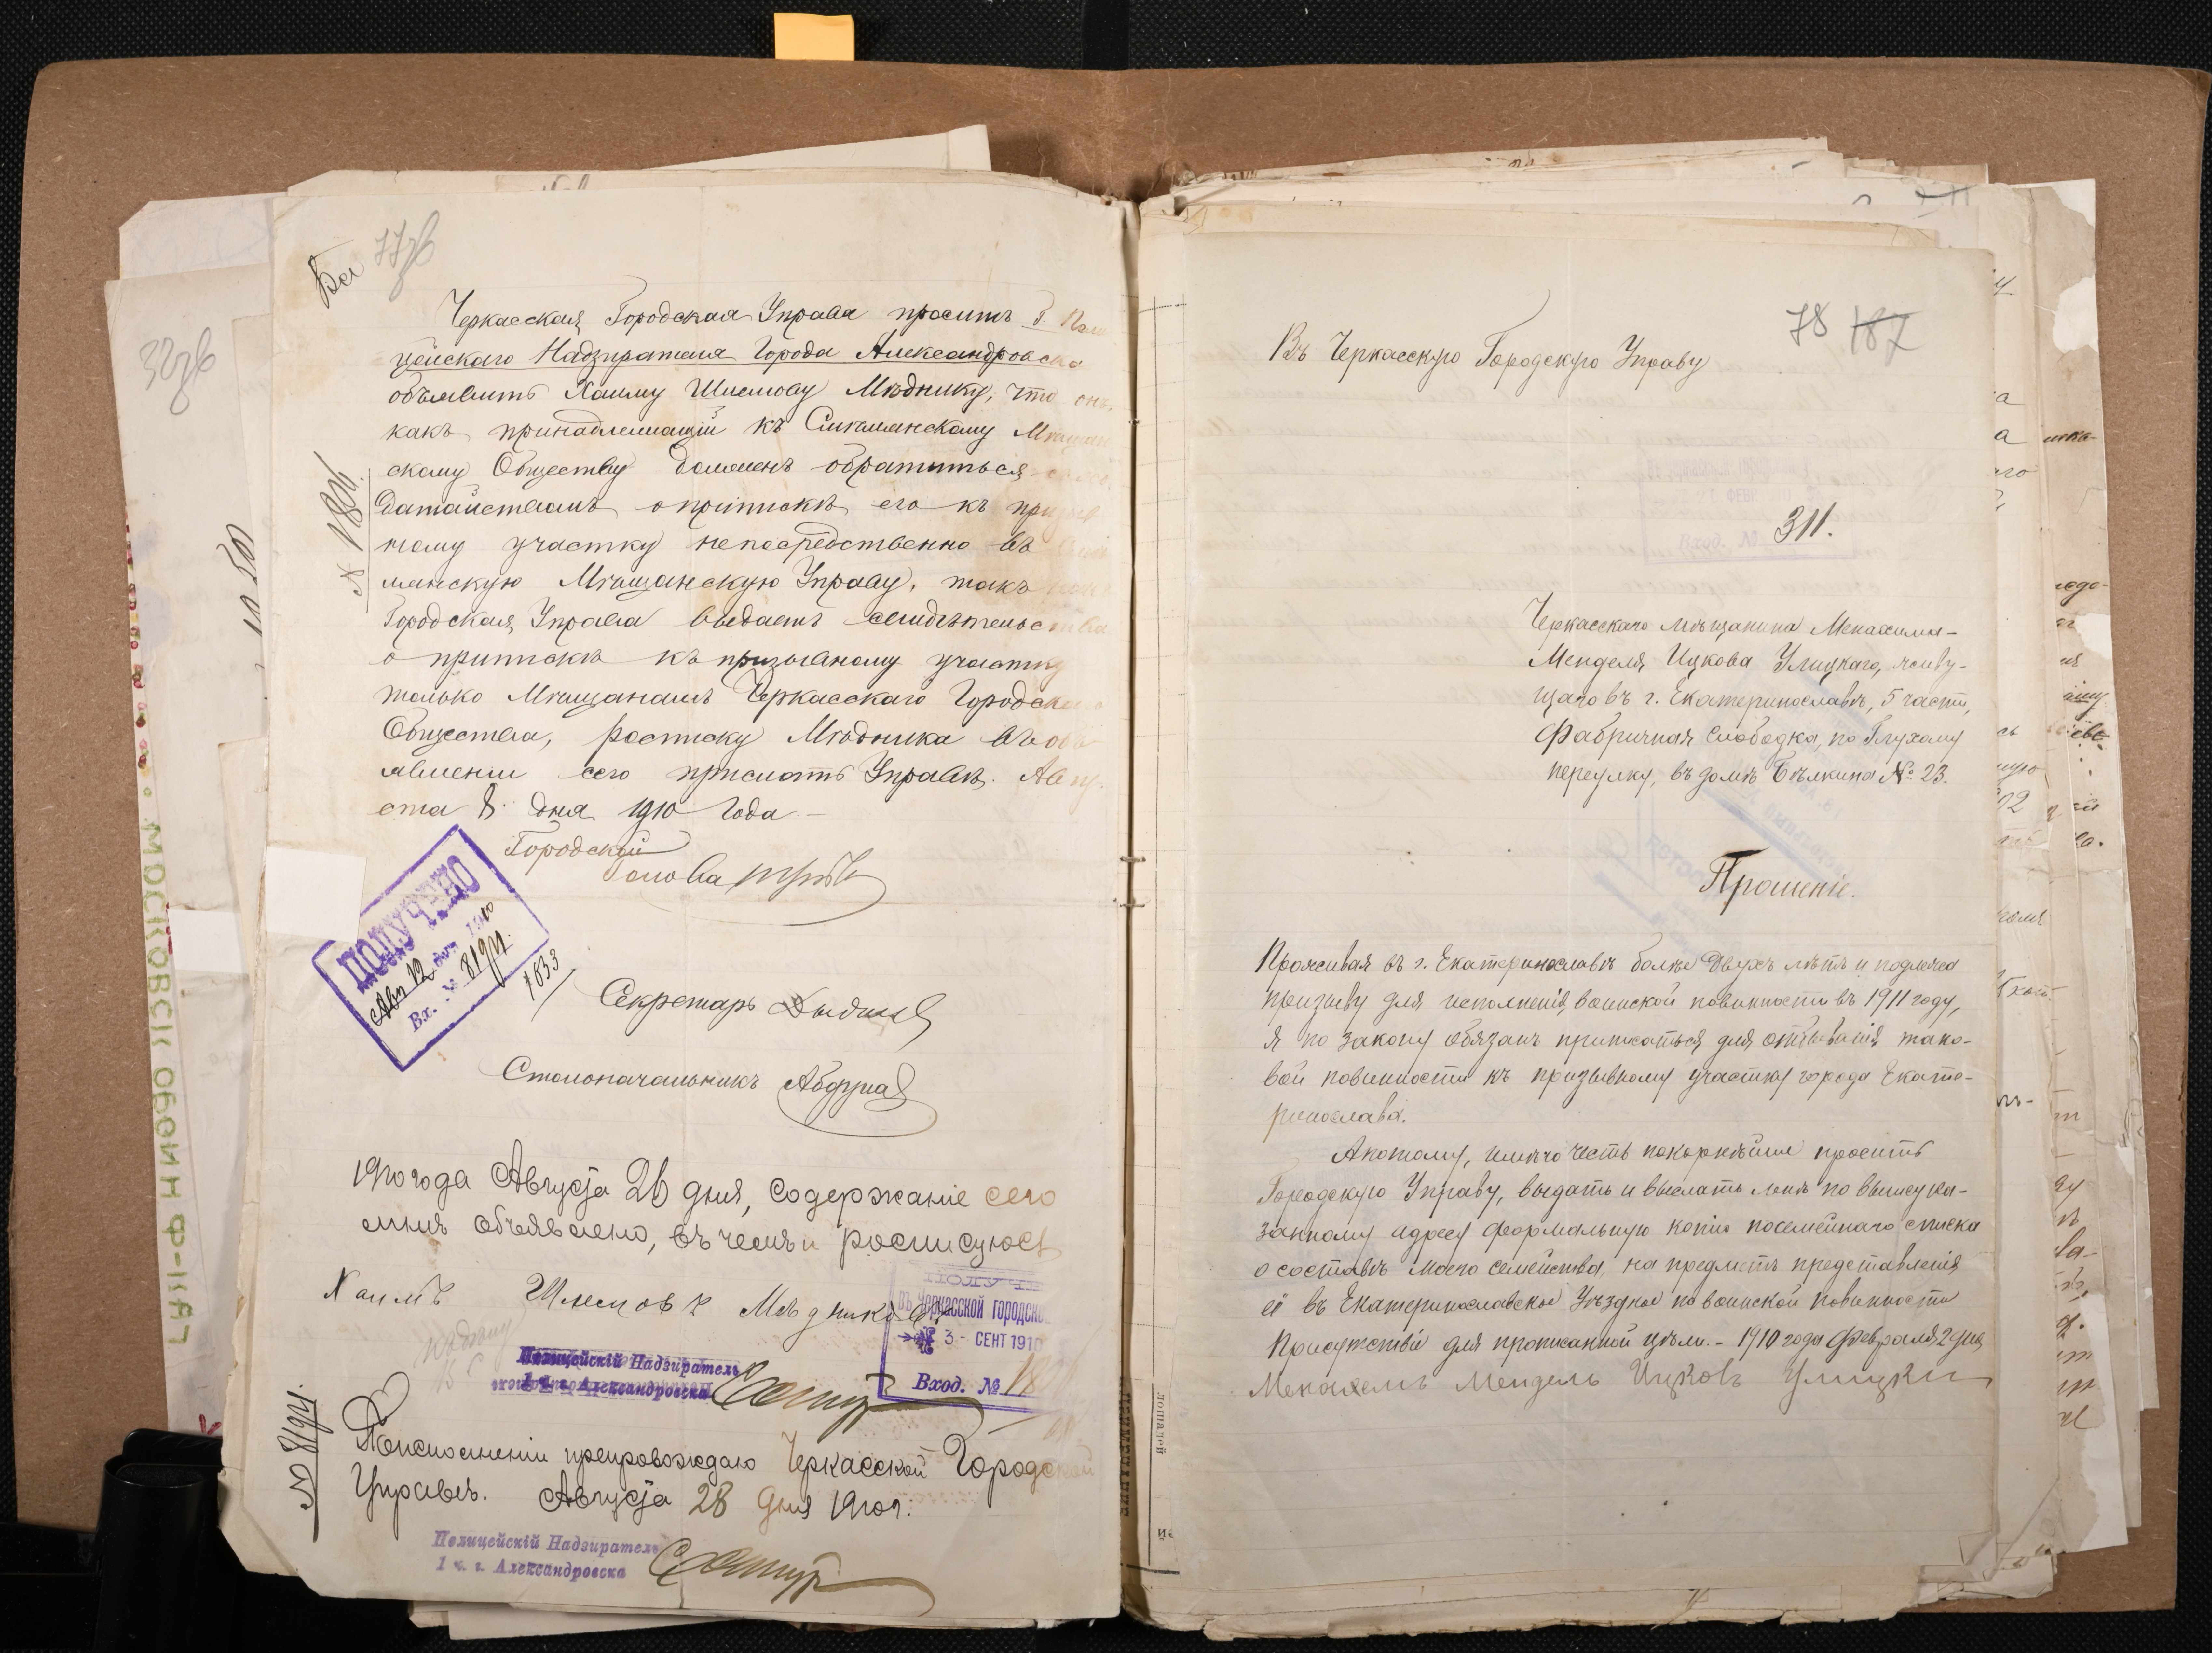 77об
Черкасская Городская Управа проситъ г. Поли
цейскаго Надзирателя Города Александровска
объявить Хаиму Шлемову Мѣднику, что онъ,
какъ принадлежащій къ Смѣлянскому Мѣщан
скому Обществу долженъ обратиться съ хо
датайствомъ о припискѣ его къ призыв
ному участку непосредственно въ Смѣ
лянскую Мѣщанскую Управу, такъ какъ
Городская Управа выдаетъ свидѣтельства
о припискѣ къ призывному участку
только Мѣщанамъ Черкасскаго Городского
Общества, росписку Мѣдника въ объ
явленіи сего прислать Управѣ. Авгу
ста 8 дня 1910 года
№ 1804
Городской
Голова
ПОЛУЧЕНО
Авг 12 дня 1910
Вх. № 8194
1833
Секретарь
Столоначальникъ
1910 года Августа 26 дня, содержаніе сего
мнѣ объявлено, въ чемъ и росписуюсь
Хаимъ Шлемовъ Мѣдниковъ
въ Черкасской городской
3 - СЕНТ 1910
Вход. №
Полицейскій Надзиратель
1 ч. г. Александровска
№ 8194
По исполненіи препровождаю Черкасской Городской
Управѣ. Августа 28 дня 1910 г.
Полицейскій Надзиратель
1 ч. г. Александровска
32об
78 187
Въ Черкасскую Городскую Управу
Вход. № 311.
Черкасскаго мѣщанина Менахима-
Менделя Ицкова Улицкаго, живу-
щаго въ г. Екатеринославѣ, 5 части,
Фабричная Слободка, по Глухому
переулку, въ домѣ Бѣлкина № 23.
Прошеніе.
Проживая въ г. Екатеринославѣ болѣе двухъ лѣтъ и подлежа
призыву для исполненія воинской повинности въ 1911 году,
я по закону обязанъ приписаться для отбыванія тако-
вой повинности къ призывному участку города Екате-
ринослава.
А потому, имѣю честь покорнѣйше просить
Городскую Управу, выдать и выслать мнѣ по вышеука-
занному адресу формальную копію посемейнаго списка
о составѣ моего семейства, на предметъ представленія
её въ Екатеринославское Уѣздное по воинской повинности
Присутствіе для прописанной цѣли. - 1910 года февраля 2 дня
Менахемъ Мендель Ицковъ Улицки